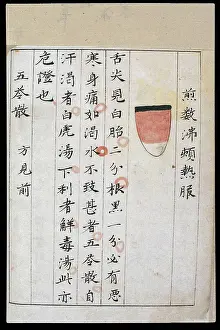 煎数沸頻熱服
舌尖見白胎二分根黑一分必有惡
寒身痛如渴水不致甚者五苓散自
汗渴者白虎湯下利者解毒湯此亦
危證也
五苓散 方見前